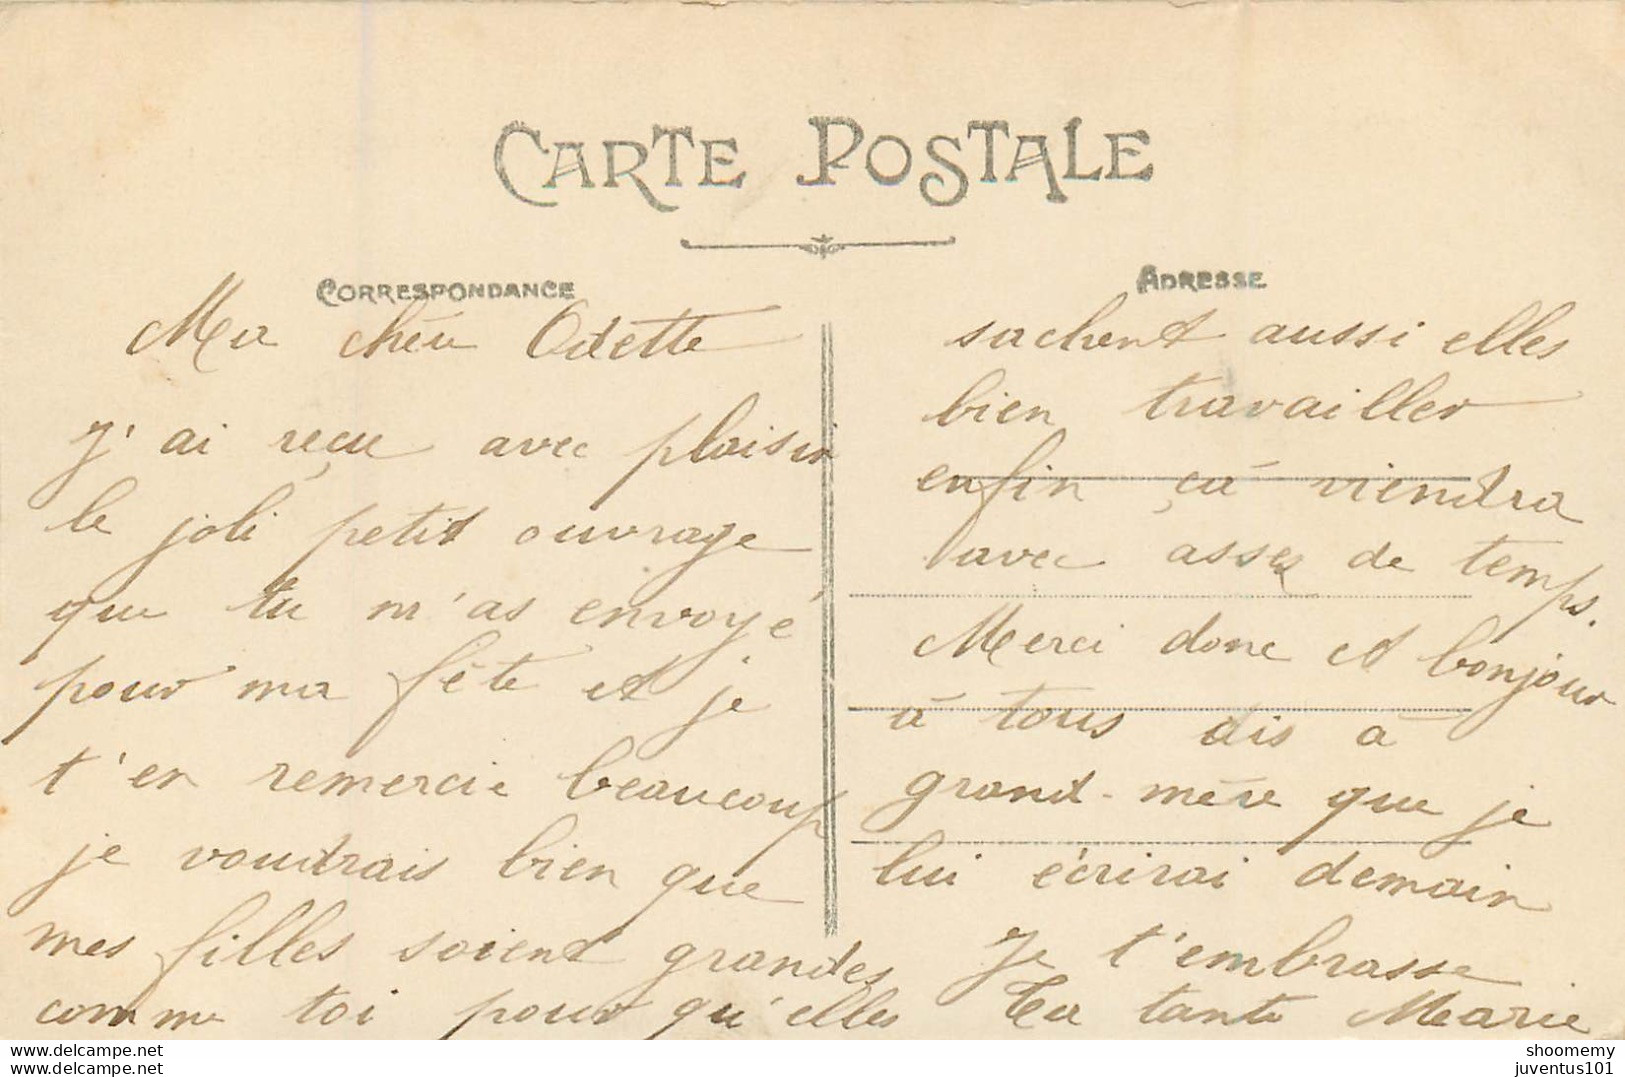 CARTE POSTALE
CORRESPONDANCE
Ma chère Odette
J'ai reçu avec plaisir
le joli petit ouvrage
que tu m'as envoyé
pour ma fête et je
t'en remercie beaucoup
je voudrais bien que
mes filles soient grandes
comme toi pour qu'elles
ADRESSE
sachent aussi elles
bien travailler
enfin çà viendra
avec assez de temps.
Merci donc et bonjour
à tous dis à
grand-mère que je
lui écrirai demain
Je t'embrasse
Ta tante Marie
shoomemy
juventus101